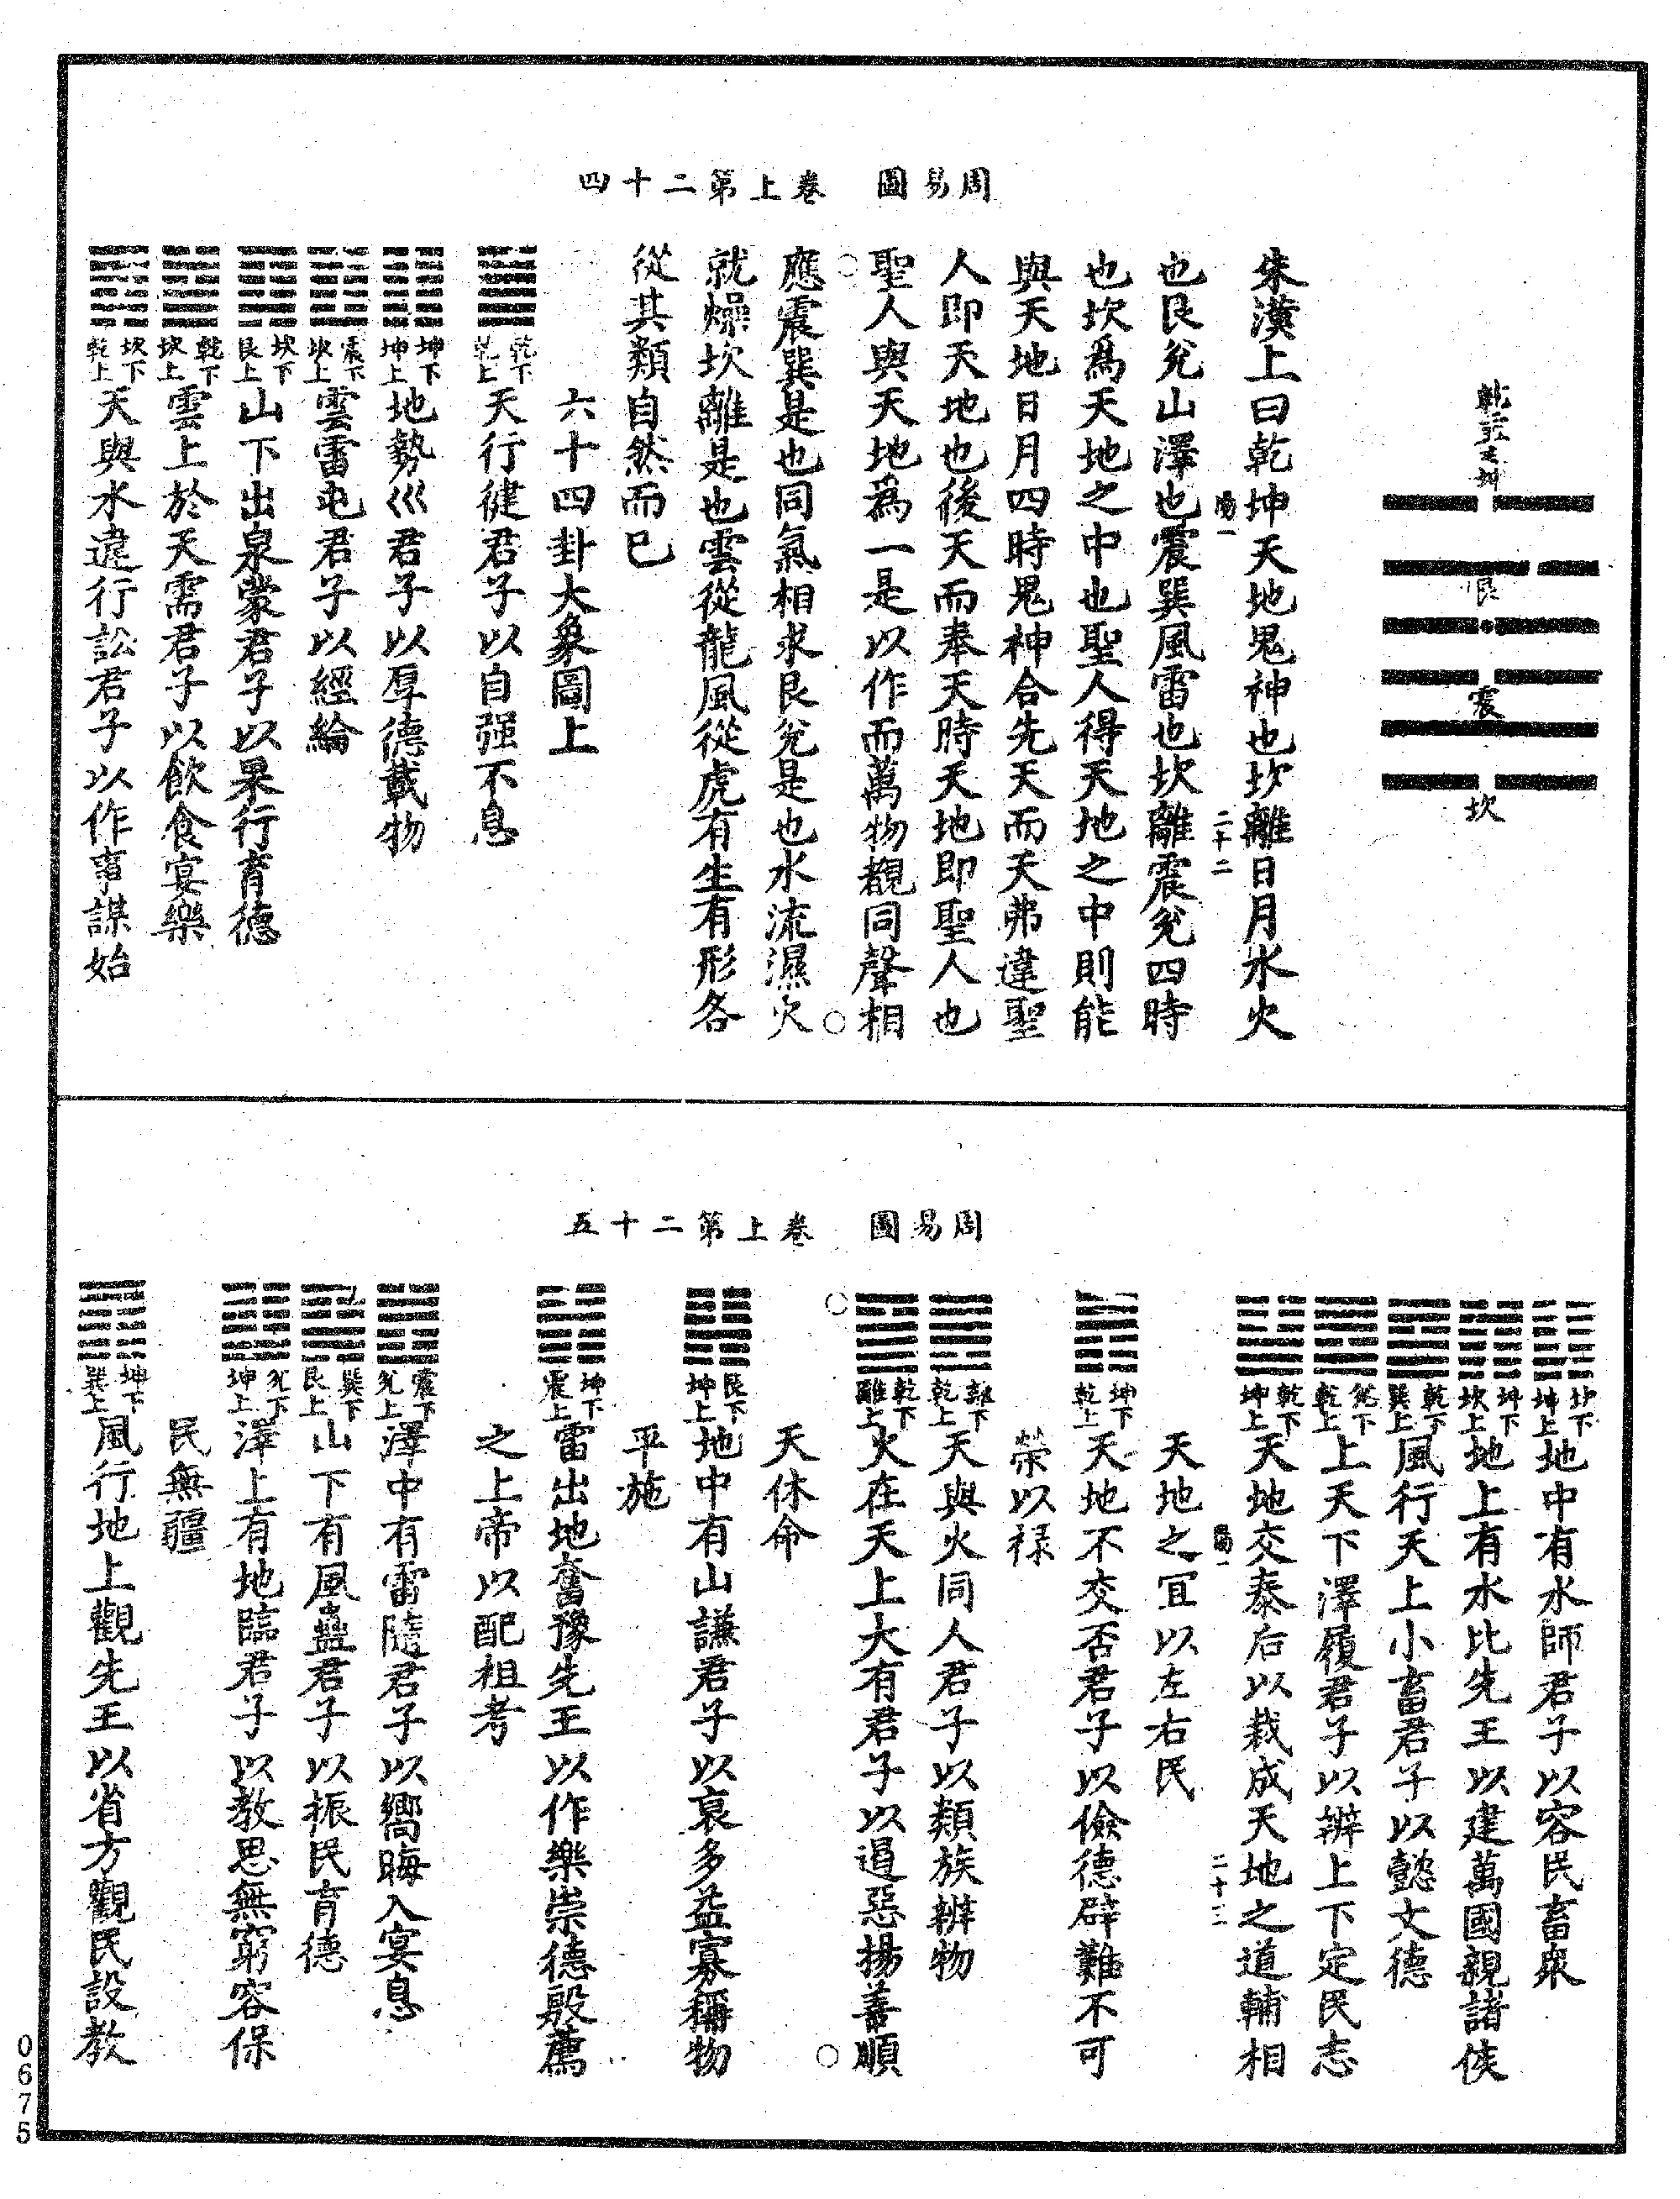 周易圖　卷上第二十四
艮
震
坎
朱漢上曰乾坤天地鬼神也坎離日月水火
陽一
二十二
也艮兊山澤也震巽風雷也坎離震兊四時
也坎爲天地之中也聖人得天地之中則能
與天地日月四時鬼神合先天而天弗違聖
人即天地也後天而奉天時天地即聖人也
聖人與天地爲一是以作而萬物覩同聲相
應震巽是也同氣相求艮兊是也水流濕火
就燥坎離是也雲從龍風從虎有生有形各
從其類自然而已
六十四卦大象圖上
乾下乾上天行徤君子以自强不息
坤下坤上地勢巛君子以厚德載物
震下坎上雲雷屯君子以經綸
坎下艮上山下出泉蒙君子以果行育德
乾下坎上雲上於天需君子以飲食宴樂
坎下乾上天與水違行訟君子以作事謀始
周易圖　卷上第二十五
坎下坤上地中有水師君子以容民畜衆
坤下坎上地上有水比先王以建萬國親諸侯
乾下巽上風行天上小畜君子以懿文德
兊下乾上上天下澤履君子以辨上下定民志
乾下坤上天地交泰后以裁成天地之道輔相
二十三
天地之宜以左右民
坤下乾上天地不交否君子以儉德辟難不可
榮以禄
離下乾上天與火同人君子以類族辨物
乾下離上火在天上大有君子以遏惡揚善順
天休命
艮下坤上地中有山謙君子以裒多益寡稱物
平施
坤下震上雷出地奮豫先王以作樂崇德殷薦
之上帝以配祖考
震下兊上澤中有雷隨君子以嚮晦入宴息
巽下艮上山下有風蠱君子以振民育德
兊下坤上澤上有地臨君子以教思無窮容保
民無疆
坤下巽上風行地上觀先王以省方觀民設教
0675